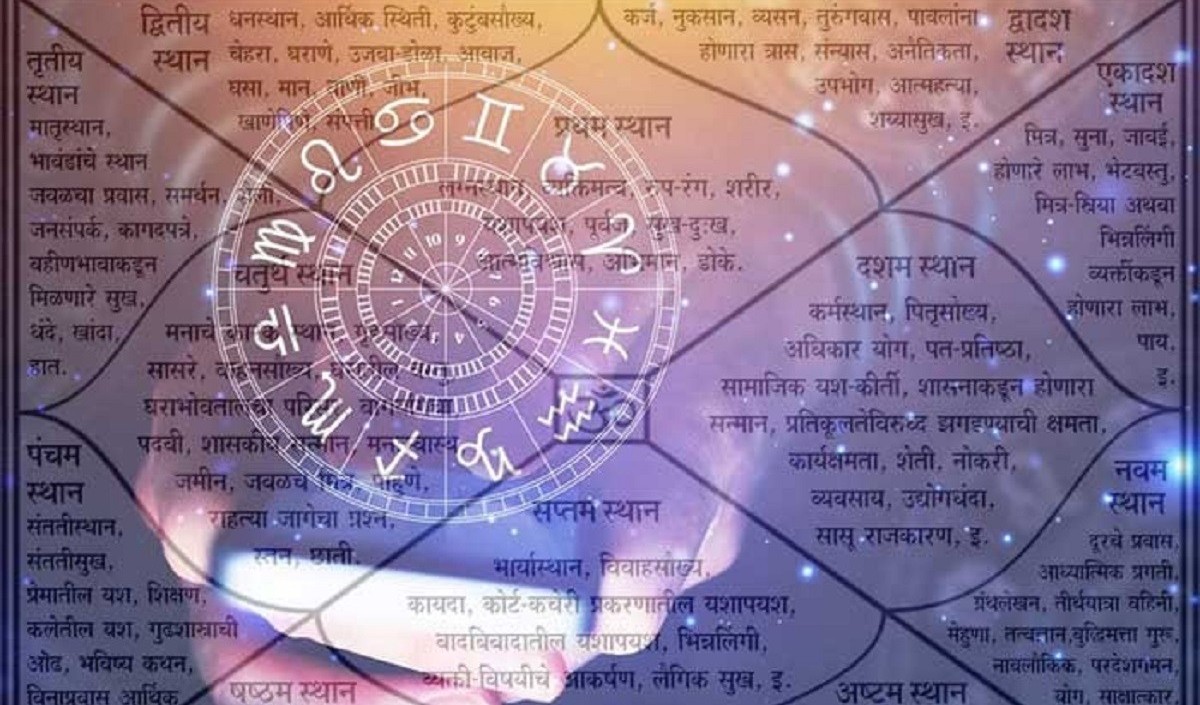 द्वितीय
स्थान
धनस्थान, आर्थिक स्थिती, कुटुंबसौख्य,
चेहरा, घराणे, उजवा डोळा, आवाज,
घसा, मान, वाणी, जीभ,
कर्ज, नुकसान, व्यसन, तुरुंगवास, पावलांना
होणारा त्रास, संन्यास, अनैतिकता,
उपभोग, आत्महत्या,
शय्यासुख, इ.
द्वादश
स्थान
तृतीय
स्थान
मातृस्थान,
भावंडांचे स्थान
जवळचा प्रवास, समर्थन,
जनसंपर्क, कागदपत्रे,
वहीणभावाकडून
मिळणारे सुख,
धंदे, खांदा,
हात.
प्रथम स्थान
लग्नस्थान, व्यक्तिमत्व, रुप-रंग, शरीर,
यशापयश, पूर्वज, सुख-दुःख,
आत्मविश्वास, अभिमान, डोके.
एकादश
स्थान
मित्र, सुना, जावई,
होणारे लाभ, भेटवस्तु,
मित्र-स्त्रिया अथवा
भिन्नलिंगी
व्यक्तींकडून
होणारा लाभ,
पाय,
इ.
चतुर्थ स्थान
मनाचे कारक स्थान, गृहसौख्य,
सासरे, वाहनसौख्य,
घराभोवतालचा
पदवी, शासकीय सन्मान,
जमीन, जवळचे मित्र, पाहुणे,
राहत्या जागेचा प्रश्न,
स्तन, छाती.
दशम स्थान
कर्मस्थान, पितृसौख्य,
अधिकार योग, पत-प्रतिष्ठा,
सामाजिक यश-कीर्ती, शासनाकडून होणारा
सन्मान, प्रतिकूलतेविरुध्द झगडण्याची क्षमता,
कार्यक्षमता, शेती, नोकरी,
व्यवसाय, उद्योगधंदा,
सासू राजकारण, इ.
ॐ
पंचम
स्थान
संततीस्थान,
संततीसुख,
प्रेमातील यश, शिक्षण,
कलेतील यश, गुढशास्त्राची
ओढ, भविष्य कथन,
विनाप्रवास आर्थिक
सप्तम स्थान
भार्यास्थान, विवाहसौख्य,
कायदा, कोर्ट-कचेरी प्रकरणातील यशापयश,
वादविवादातील यशापयश, भिन्नलिंगी,
व्यक्ती-विषयीचे आकर्षण, लैंगिक सुख, इ.
नवम
स्थान
दूरचे प्रवास,
आध्यात्मिक प्रगती,
ग्रंथलेखन, तीर्थयात्रा वहिनी,
मेहुणा, तत्वज्ञान,बुद्धिमत्ता गुरू,
नावलौकिक, परदेशगमन,
योग, साक्षात्कार,
षष्ठम स्थान
अष्टम स्थान